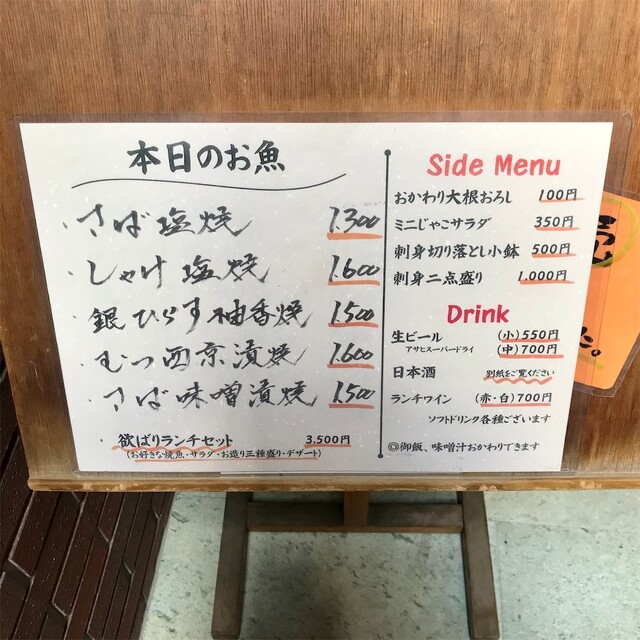 本日のお魚
さば塩焼 1.300
しゃけ塩焼 1.600
銀ひらす柚香焼 1.500
むつ西京漬焼 1.600
さば味噌漬焼 1.500
欲ばりランチセット 3.500円
(お好きな焼魚・サラダ・お造り三種盛り・デザート)
Side Menu
おかわり大根おろし 100円
ミニじゃこサラダ 350円
刺身切り落とし小鉢 500円
刺身二点盛り 1.000円
Drink
生ビール (小)550円
アサヒスーパードライ (中)700円
日本酒 別紙をご覧ください
ランチワイン (赤・白)700円
ソフトドリンク各種ございます
◎御飯、味噌汁おかわりできます
た。